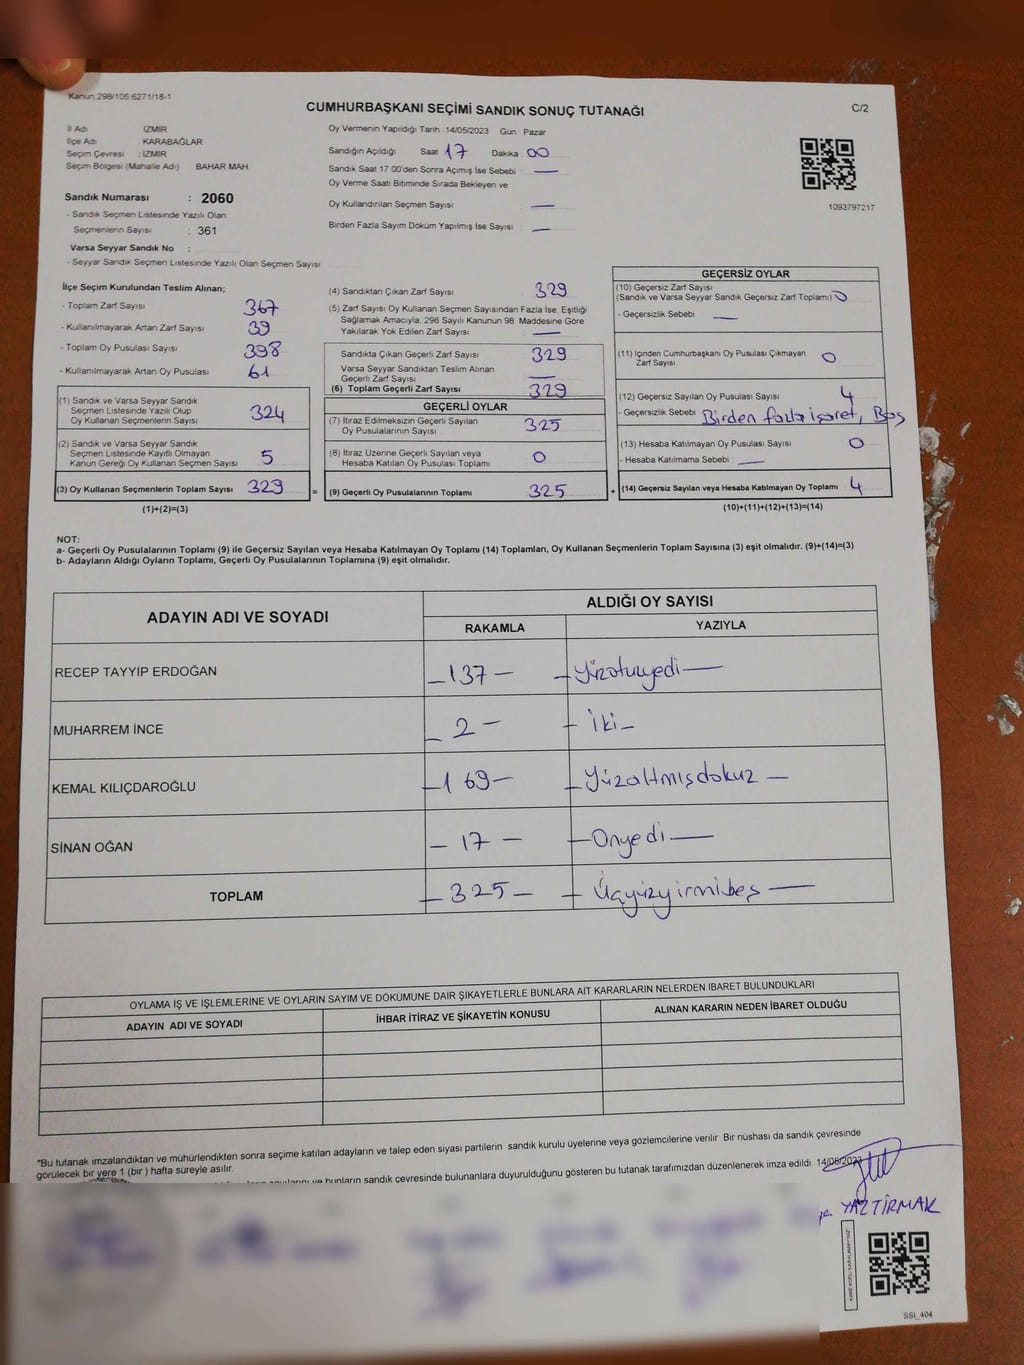 Kanun:298/105:6271/18-1
CUMHURBAŞKANI SEÇİMİ SANDIK SONUÇ TUTANAĞI
C/2
İl Adı İZMİR
İlçe Adı KARABAĞLAR
Seçim Çevresi : İZMİR
Seçim Bölgesi (Mahalle Adı) : BAHAR MAH.
Sandık Numarası : 2060
- Sandık Seçmen Listesinde Yazılı Olan
Seçmenlerin Sayısı : 361
Varsa Seyyar Sandık No :
- Seyyar Sandık Seçmen Listesinde Yazılı Olan Seçmen Sayısı
Oy Vermenin Yapıldığı Tarih :14/05/2023 Gün : Pazar
Sandığın Açıldığı Saat 17 Dakika : 00
Sandık Saat 17.00'den Sonra Açımış İse Sebebi : —
Oy Verme Saati Bitiminde Sırada Bekleyen ve
Oy Kullandırılan Seçmen Sayısı : —
Birden Fazla Sayım Döküm Yapılmış İse Sayısı : —
1093797217
İlçe Seçim Kurulundan Teslim Alınan;
- Toplam Zarf Sayısı 367
- Kullanılmayarak Artan Zarf Sayısı : 39
- Toplam Oy Pusulası Sayısı : 398
- Kullanılmayarak Artan Oy Pusulası : 61
(1) Sandık ve Varsa Seyyar Sandık
Seçmen Listesinde Yazılı Olup
Oy Kullanan Seçmenlerin Sayısı : 324
(2) Sandık ve Varsa Seyyar Sandık
Seçmen Listesinde Kayıtlı Olmayan
Kanun Gereği Oy Kullanan Seçmen Sayısı : 5
(3) Oy Kullanan Seçmenlerin Toplam Sayısı : 329
(1)+(2)=(3)
(4) Sandıktan Çıkan Zarf Sayısı : 329
(5) Zarf Sayısı Oy Kullanan Seçmen Sayısından Fazla İse, Eşitliği
Sağlamak Amacıyla; 298 Sayılı Kanunun 98. Maddesine Göre
Yakılarak Yok Edilen Zarf Sayısı : —
Sandıkta Çıkan Geçerli Zarf Sayısı : 329
Varsa Seyyar Sandıktan Teslim Alınan
Geçerli Zarf Sayısı : —
(6) Toplam Geçerli Zarf Sayısı : 329
GEÇERLİ OYLAR
(7) İtiraz Edilmeksizin Geçerli Sayılan
Oy Pusulalarının Sayısı : 325
(8) İtiraz Üzerine Geçerli Sayılan veya
Hesaba Katılan Oy Pusulası Toplamı : 0
= (9) Geçerli Oy Pusulalarının Toplamı : 325 +
GEÇERSİZ OYLAR
(10) Geçersiz Zarf Sayısı
(Sandık ve Varsa Seyyar Sandık Geçersiz Zarf Toplamı) : 0
- Geçersizlik Sebebi : —
(11) İçinden Cumhurbaşkanı Oy Pusulası Çıkmayan
Zarf Sayısı : 0
(12) Geçersiz Sayılan Oy Pusulası Sayısı : 4
- Geçersizlik Sebebi : Birden fazla işaret, Boş
(13) Hesaba Katılmayan Oy Pusulası Sayısı : 0
- Hesaba Katılmama Sebebi : —
(14) Geçersiz Sayılan veya Hesaba Katılmayan Oy Toplamı : 4
(10)+(11)+(12)+(13)=(14)
NOT:
a- Geçerli Oy Pusulalarının Toplamı (9) ile Geçersiz Sayılan veya Hesaba Katılmayan Oy Toplamı (14) Toplamları, Oy Kullanan Seçmenlerin Toplam Sayısına (3) eşit olmalıdır. (9)+(14)=(3)
b- Adayların Aldığı Oyların Toplamı, Geçerli Oy Pusulalarının Toplamına (9) eşit olmalıdır.
ADAYIN ADI VE SOYADI ALDIĞI OY SAYISI
RAKAMLA YAZIYLA
RECEP TAYYİP ERDOĞAN — 137 — — Yüzotuzyedi —
MUHARREM İNCE — 2 — — İki —
KEMAL KILIÇDAROĞLU — 169 — — Yüzaltmışdokuz —
SİNAN OĞAN — 17 — — Onyedi —
TOPLAM — 325 — — Üçyüzyirmibeş —
OYLAMA İŞ VE İŞLEMLERİNE VE OYLARIN SAYIM VE DÖKÜMÜNE DAİR ŞİKAYETLERLE BUNLARA AİT KARARLARIN NELERDEN İBARET BULUNDUKLARI
ADAYIN ADI VE SOYADI İHBAR İTİRAZ VE ŞİKAYETİN KONUSU ALINAN KARARIN NEDEN İBARET OLDUĞU
*Bu tutanak imzalandıktan ve mühürlendikten sonra seçime katılan adayların ve talep eden siyasi partilerin sandık kurulu üyelerine veya gözlemcilerine verilir. Bir nüshası da sandık çevresinde
görülecek bir yere 1 (bir) hafta süreyle asılır.
ve bunların sandık çevresinde bulunanlara duyurulduğunu gösteren bu tutanak tarafımızdan düzenlenerek imza edildi.
YAZTIRMAK
SSI_404